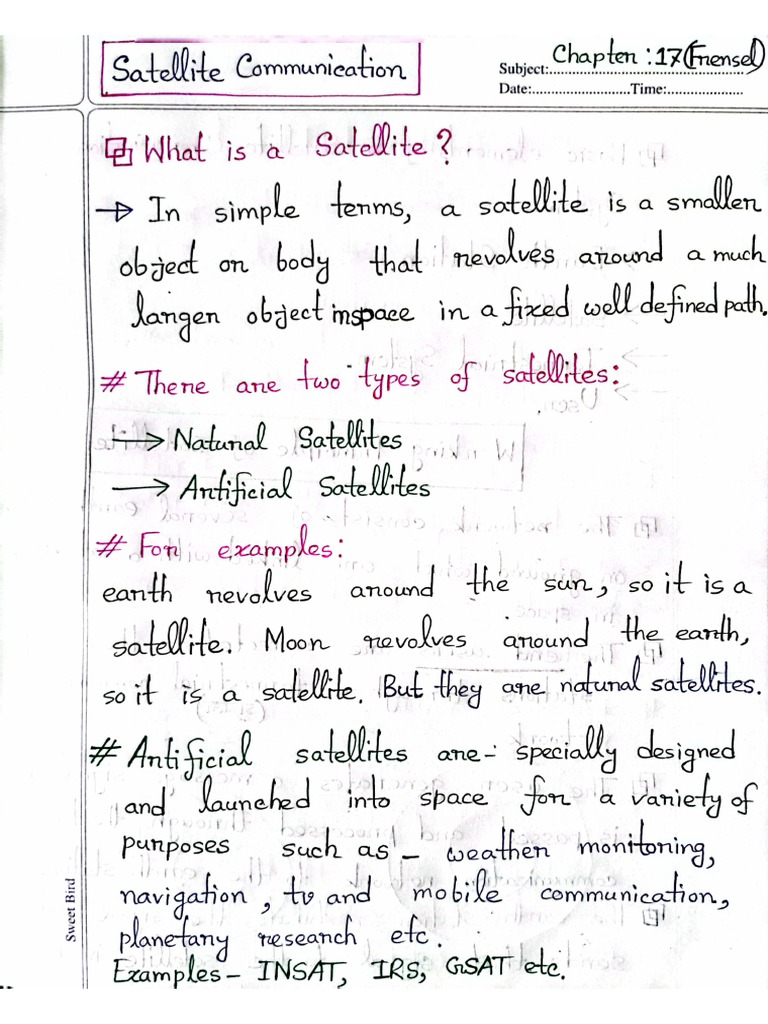 Satellite Communication
Subject:.................................................. Chapter : 17 (Frensel)
Date:..........................Time:....................
What is a Satellite?
In simple terms, a satellite is a smaller
object or body that revolves around a much
larger object inspace in a fixed well defined path.
# There are two types of satellites:
→ Natural Satellites
→ Artificial Satellites
# For examples:
earth revolves around the sun, so it is a
satellite. Moon revolves around the earth,
so it is a satellite. But they are natural satellites.
# Artificial satellites are- specially designed
and launched into space for a variety of
purposes such as – weather monitoring,
navigation, tv and mobile communication,
planetary research etc.
Examples – INSAT, IRS, GSAT etc.
Sweet Bird